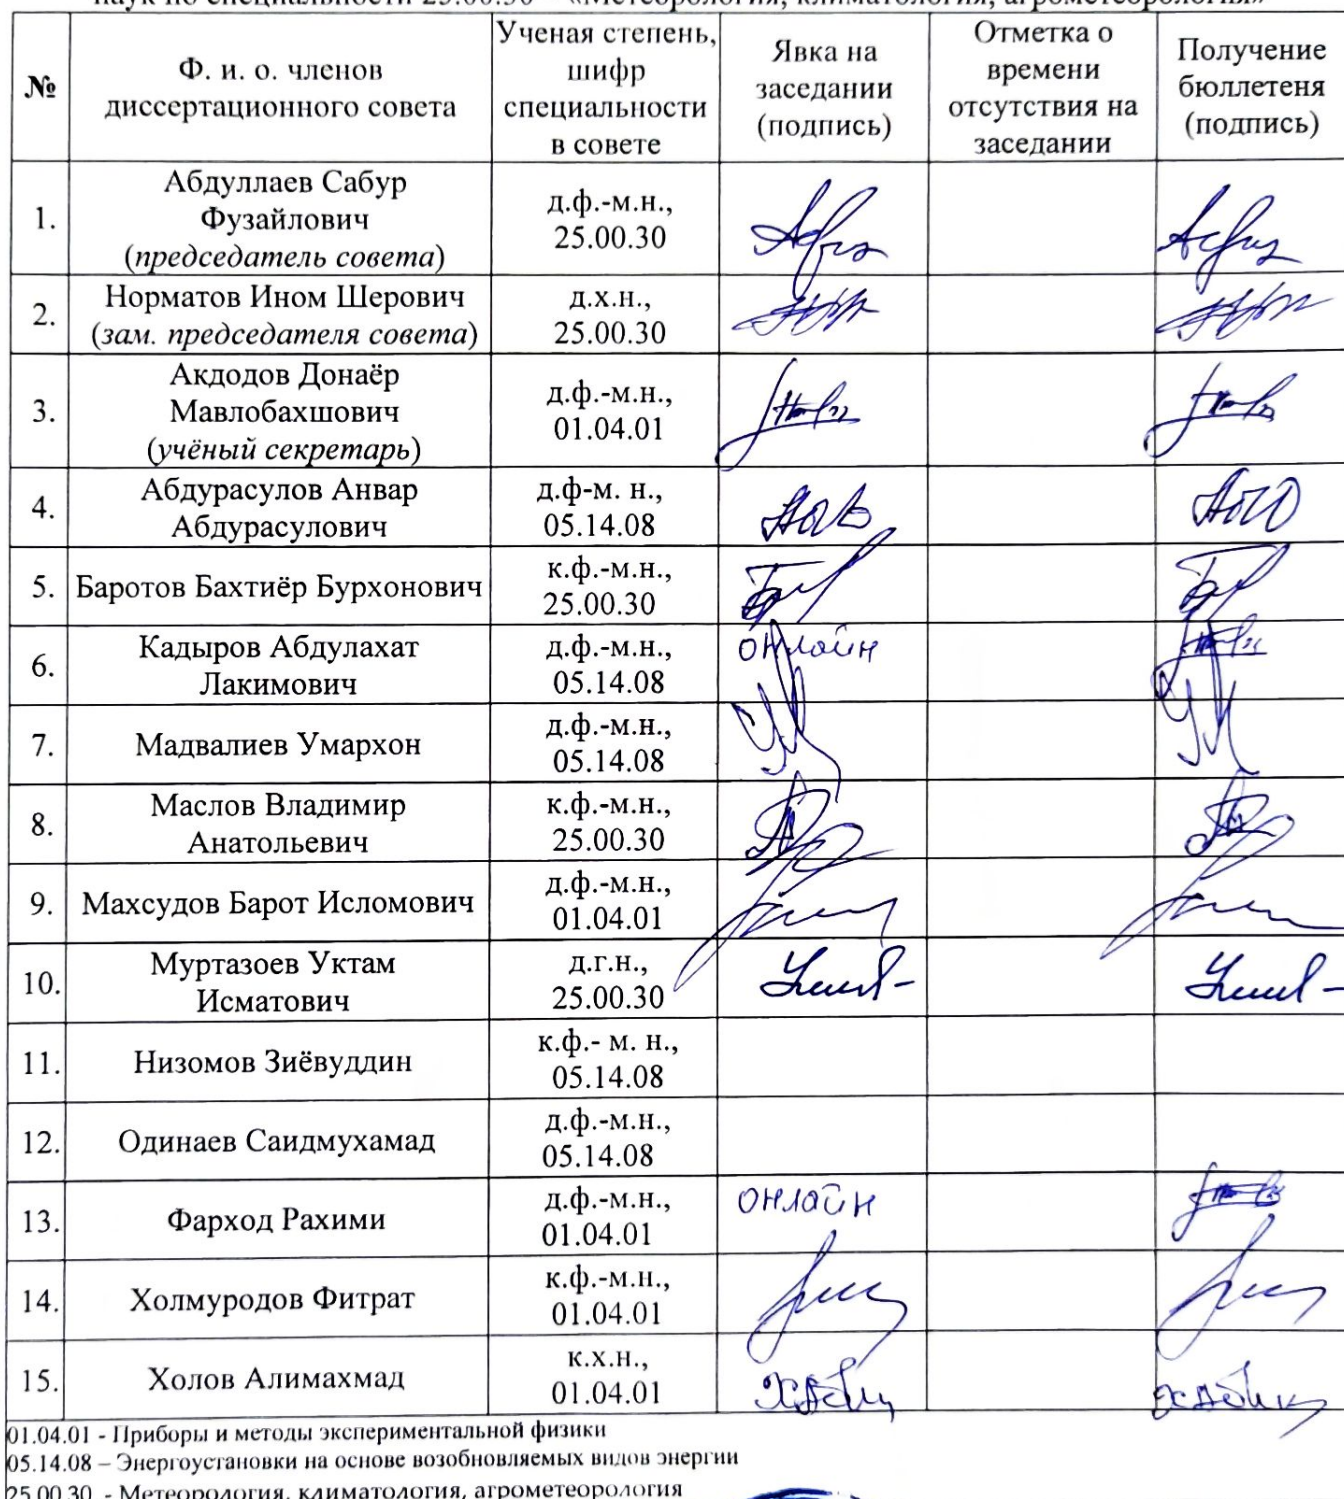 наук по специальности 25.00.30 – «Метеорология, климатология, агрометеорология»
№
Ф. и. о. членов
диссертационного совета
Ученая степень,
шифр
специальности
в совете
Явка на
заседании
(подпись)
Отметка о
времени
отсутствия на
заседании
Получение
бюллетеня
(подпись)
1.
Абдуллаев Сабур
Фузайлович
(председатель совета)
д.ф.-м.н.,
25.00.30
2.
Норматов Ином Шерович
(зам. председателя совета)
д.х.н.,
25.00.30
3.
Акдодов Донаёр
Мавлобахшович
(учёный секретарь)
д.ф.-м.н.,
01.04.01
4.
Абдурасулов Анвар
Абдурасулович
д.ф-м. н.,
05.14.08
5.
Баротов Бахтиёр Бурхонович
к.ф.-м.н.,
25.00.30
6.
Кадыров Абдулахат
Лакимович
д.ф.-м.н.,
05.14.08
онлайн
7.
Мадвалиев Умархон
д.ф.-м.н.,
05.14.08
8.
Маслов Владимир
Анатольевич
к.ф.-м.н.,
25.00.30
9.
Махсудов Барот Исломович
д.ф.-м.н.,
01.04.01
10.
Муртазоев Уктам
Исматович
д.г.н.,
25.00.30
11.
Низомов Зиёвуддин
к.ф.- м. н.,
05.14.08
12.
Одинаев Саидмухамад
д.ф.-м.н.,
05.14.08
13.
Фарход Рахими
д.ф.-м.н.,
01.04.01
онлайн
14.
Холмуродов Фитрат
к.ф.-м.н.,
01.04.01
15.
Холов Алимахмад
к.х.н.,
01.04.01
01.04.01 - Приборы и методы экспериментальной физики
05.14.08 – Энергоустановки на основе возобновляемых видов энергии
25.00.30 - Метеорология, климатология, агрометеорология